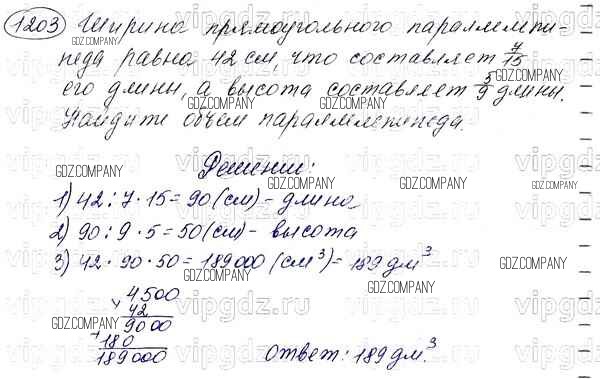 1203 Ширина прямоугольного параллелепи-
педа равна 42 см, что составляет 7/15
его длины, а высота составляет 5/9 длины.
Найдите объем параллелепипеда.
Решение:
1) 42 : 7 · 15 = 90 (см) - длина
2) 90 : 9 · 5 = 50 (см) - высота
3) 42 · 90 · 50 = 189000 (см³) = 189 дм³
4500
42
9000
180
189000
Ответ: 189 дм³.
GDZ.COMPANY
vipgdz.ru